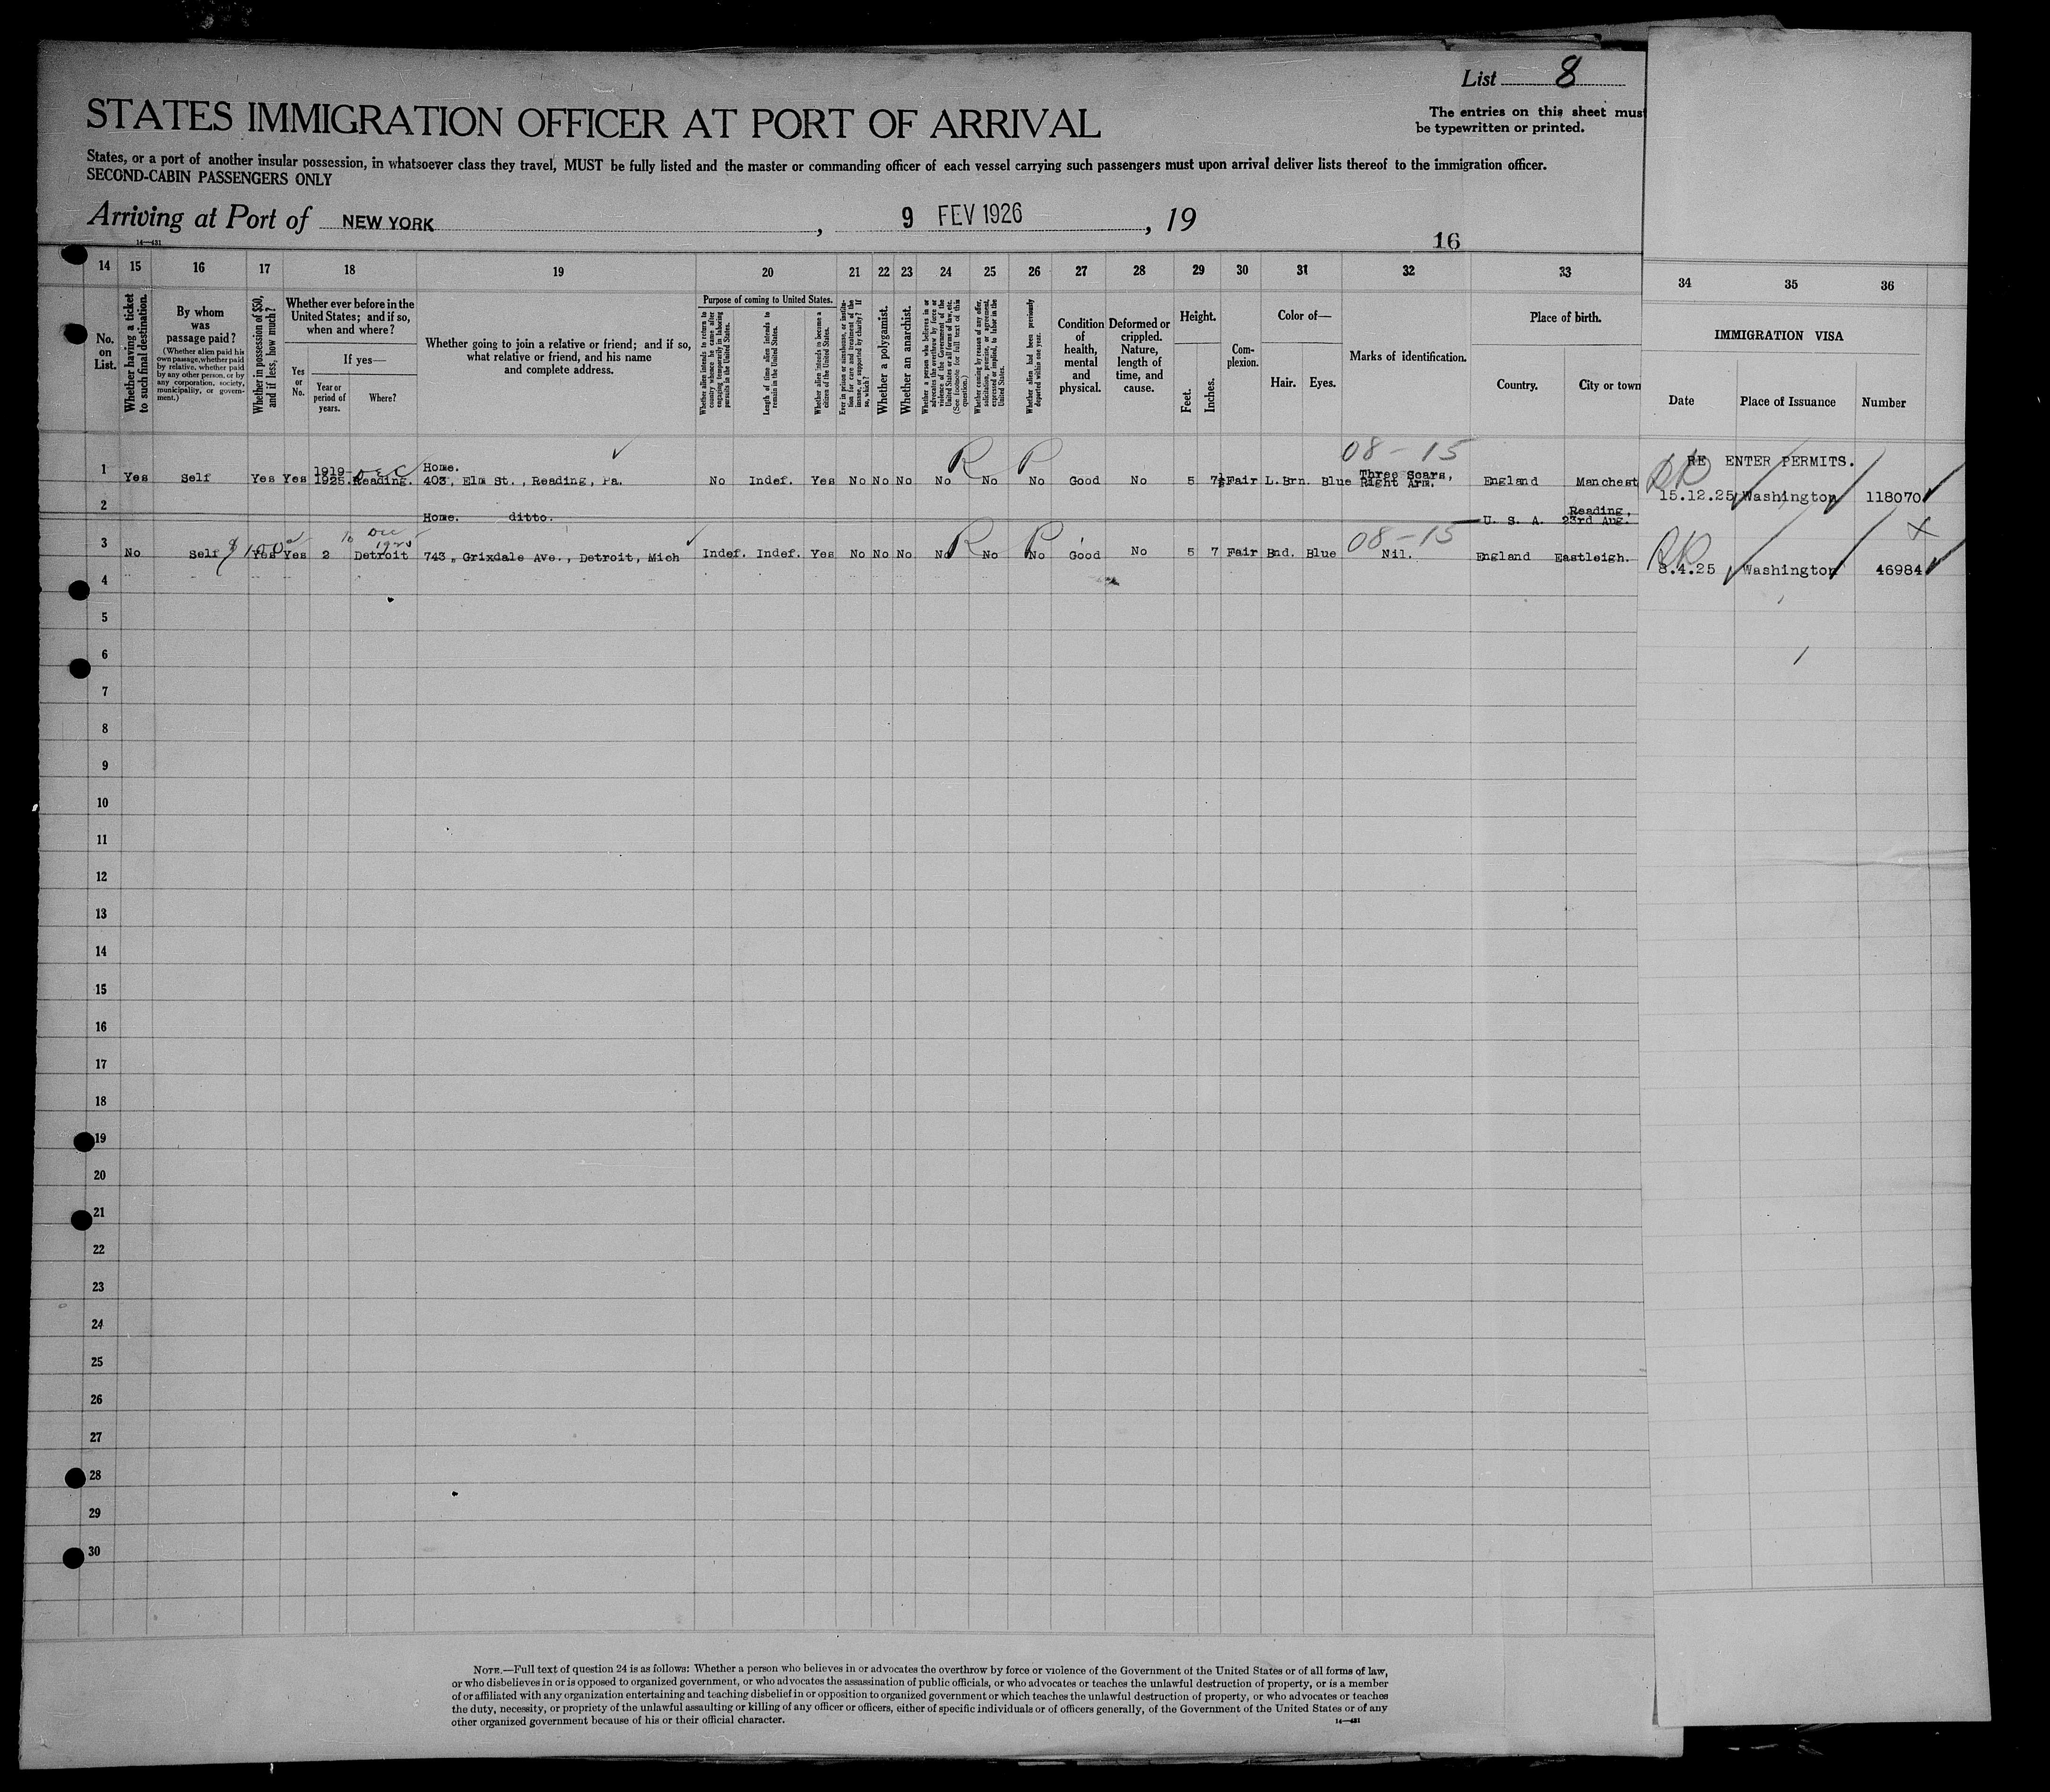 List 8
STATES IMMIGRATION OFFICER AT PORT OF ARRIVAL
The entries on this sheet must
be typewritten or printed.
States, or a port of another insular possession, in whatsoever class they travel, MUST be fully listed and the master or commanding officer of each vessel carrying such passengers must upon arrival deliver lists thereof to the immigration officer.
SECOND-CABIN PASSENGERS ONLY
Arriving at Port of NEW YORK , 9 FEV 1926 , 19
14—431
16
14 15 16 17 18 19 20 21 22 23 24 25 26 27 28 29 30 31 32 33 34 35 36
No. on List.
Whether having a ticket to such final destination.
By whom was passage paid?
(Whether alien paid his own passage, whether paid by relative, whether paid by any other person, or by any corporation, society, municipality, or government.)
Whether in possession of $50, and if less, how much?
Whether ever before in the United States; and if so, when and where?
Yes or No.
If yes—
Year or period of years.
Where?
Whether going to join a relative or friend; and if so, what relative or friend, and his name and complete address.
Purpose of coming to United States.
Whether alien intends to return to country whence he came after engaging temporarily in laboring pursuits in the United States.
Length of time alien intends to remain in the United States.
Whether alien intends to become a citizen of the United States.
Ever in prison or almshouse, or institution for care and treatment of the insane, or supported by charity? If so, which?
Whether a polygamist.
Whether an anarchist.
Whether a person who believes in or advocates the overthrow by force or violence of the Government of the United States or all forms of law, etc. (See footnote for full text of this question.)
Whether coming by reason of any offer, solicitation, promise, or agreement, expressed or implied, to labor in the United States.
Whether alien had been previously deported within one year.
Condition of health, mental and physical.
Deformed or crippled. Nature, length of time, and cause.
Height.
Feet. Inches.
Complexion.
Color of—
Hair. Eyes.
Marks of identification.
Place of birth.
Country. City or town
IMMIGRATION VISA
Date Place of Issuance Number
08-15
RE ENTER PERMITS.
1 Yes Self Yes Yes 1919-1925. Dec Reading. Home. 403, Elm St., Reading, Pa. No Indef. Yes No No No No R No P No Good No 5 7½ Fair L.Brn. Blue Three Scars, Right Arm. England Manchest 15.12.25 Washington 118070
2 Home. ditto. U. S. A. Reading, 23rd Aug.
3 No Self $100 Yes Yes 2 to Dec 1925 Detroit 743, Grixdale Ave., Detroit, Mich Indef. Indef. Yes No No No No R No P No Good No 5 7 Fair Bnd. Blue 08-15 Nil. England Eastleigh. 8.4.25 Washington 46984
4
5
6
7
8
9
10
11
12
13
14
15
16
17
18
19
20
21
22
23
24
25
26
27
28
29
30
NOTE.—Full text of question 24 is as follows: Whether a person who believes in or advocates the overthrow by force or violence of the Government of the United States or of all forms of law,
or who disbelieves in or is opposed to organized government, or who advocates the assassination of public officials, or who advocates or teaches the unlawful destruction of property, or is a member
of or affiliated with any organization entertaining and teaching disbelief in or opposition to organized government or which teaches the unlawful destruction of property, or who advocates or teaches
the duty, necessity, or propriety of the unlawful assaulting or killing of any officer or officers, either of specific individuals or of officers generally, of the Government of the United States or of any
other organized government because of his or their official character.
14—431